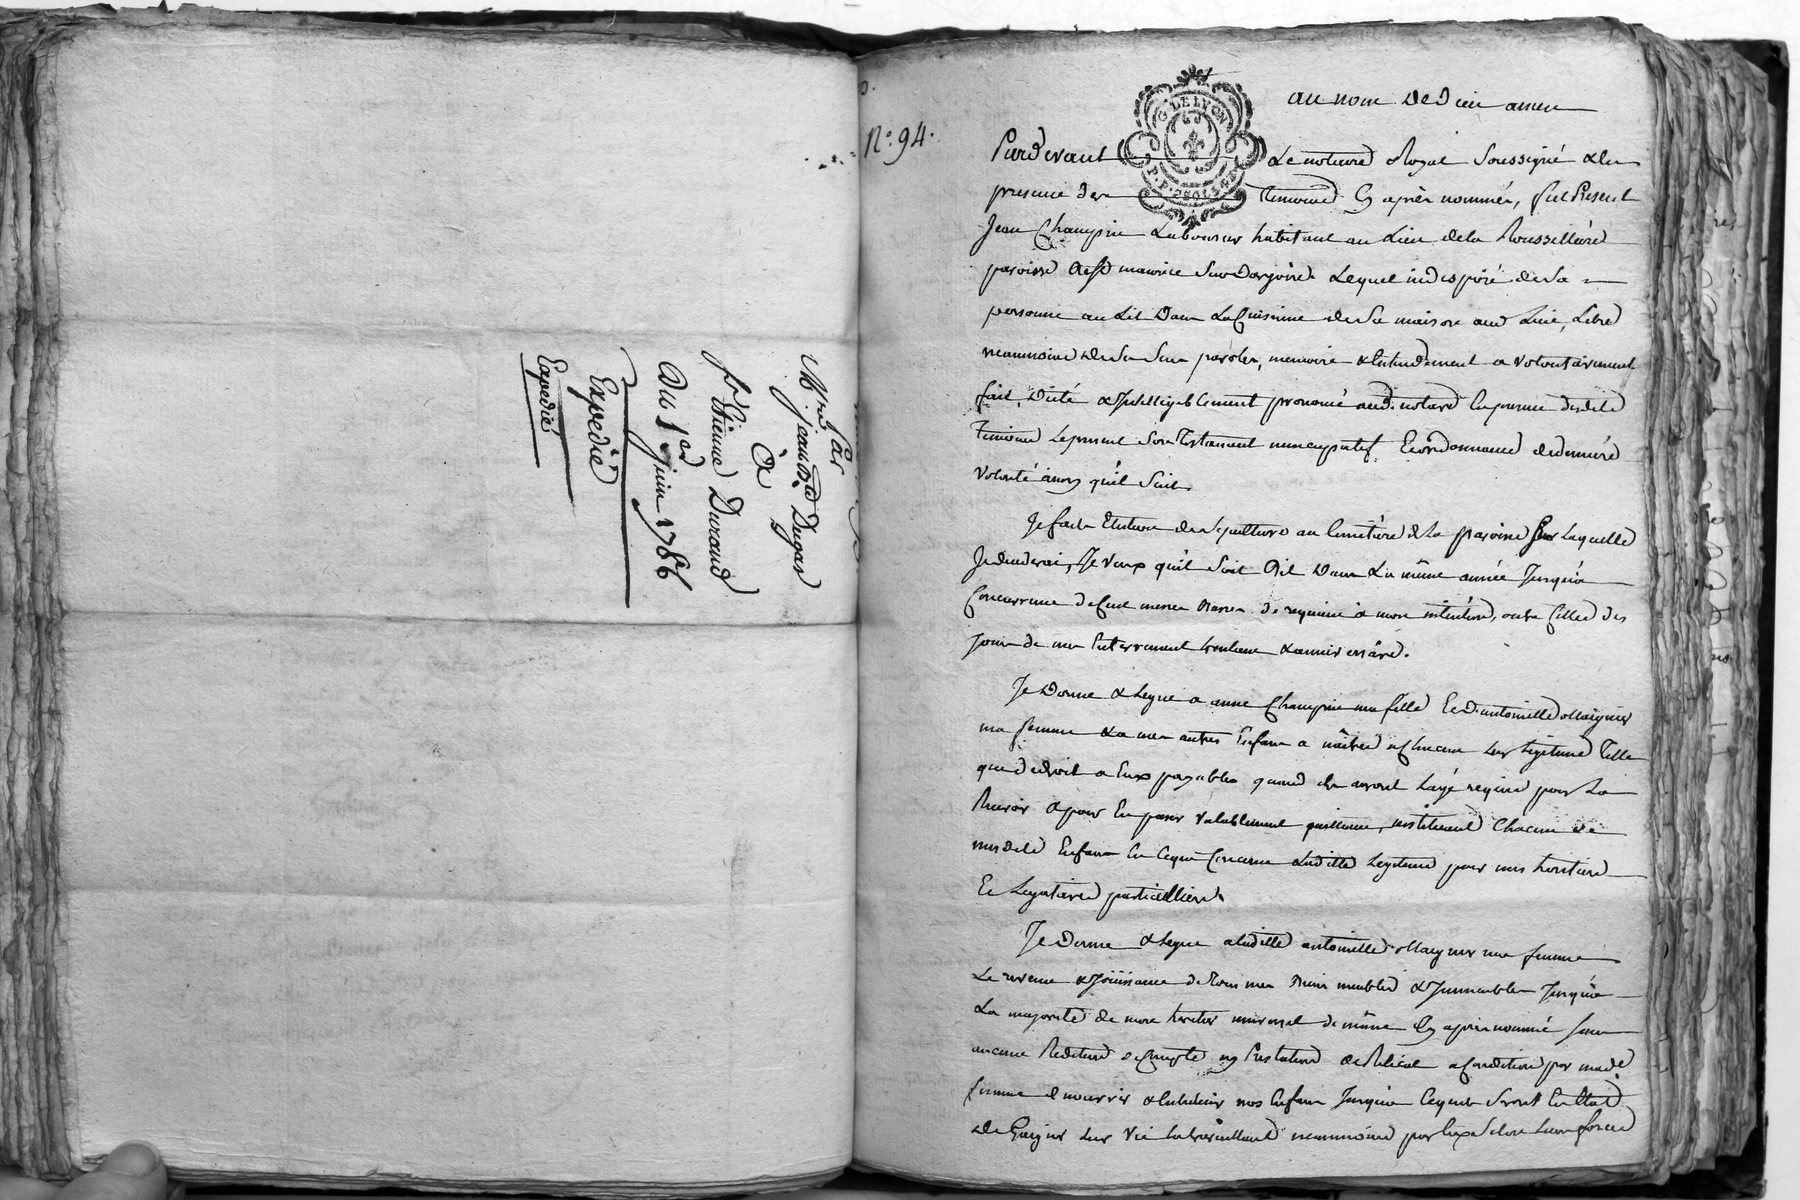 Par
Mre jean Bte Dugas
à
Sr Etienne Durand
Du 1er juin 1786
Expedié
Expedié
N.° 94.
G. DE LYON
au nom de Dieu amen
Pardevant Le notaire Royal Soussigné & en
presence des temoins Cy après nommés, fut Present
Jean Champin Laboureur habitant au Lieu de la Rousselliere
paroisse de St maurice Sur Dargoire Lequel indisposé de Sa
personne au Lit Dans La Cuisinne de Sa maison aud Lieu, Libre
neanmoins de Ses Sens parole, memoire & Entendement a volontairement
fait, Dicté & Intelligiblement prononcé aud. notaire En presence desdits
Temoins Le present Son Testament nuncupatif Et ordonnance de derniere
volonté ainsy qu'il Suit.
Je fais Election de Sepulture au Cimetiere de La paroisse Sur Laquelle
Je decederai, Je veux qu'il Soit Dit Dans La même année Jusqu'à
Concurrence de Cent messes Basses de requiem à mon intention, outre Celles des
Jours de mon Enterrement trentaine & anniversaire.
Je Donne & Legue a anne Champin ma fille Et d'antoinette Magnin
ma femme & a mes autres Enfans a naître a Chacun Leur Legitime Telle
que de droit a Eux payables quand ils auront L'age requis pour La
Recevoir & pour En passer valablement quittance, instituant Chacun de
mesdits Enfans En Ce qui Concerne Ladite Legitime pour mes heritiers
Et Legataires particulliers.
Je Donne & Legue a Ladite antoinette Magnin ma femme
Le revenu & Jouissance de Tous mes Biens meubles & Immeubles Jusqu'à
La majorité de mon heritier universel de même Cy après nommé Sans
aucune Reddition de Compte ny Prestation de Reliquat a Condition par mad.e
femme de nourrir & Entretenir nos Enfans Jusqu'à Ce qu'ils Soient En Etat
de Gagner Leur vie En travaillant neanmoins par Eux Selon Leurs forces